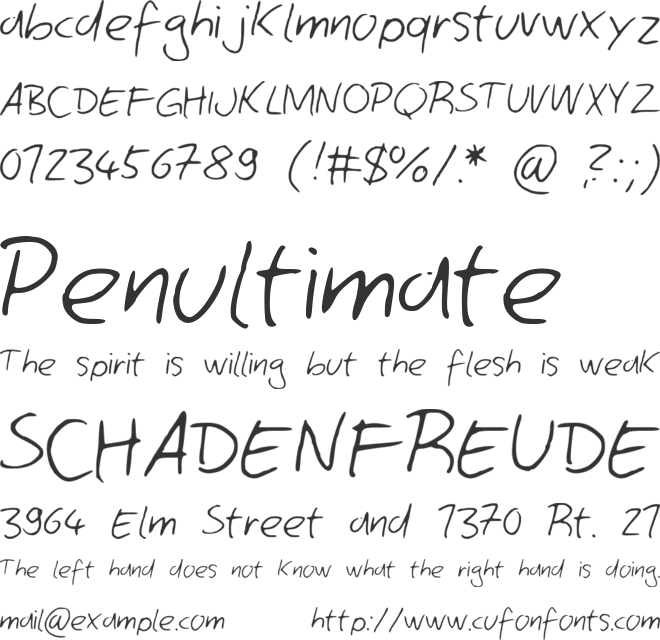 abcdefghijklmnopqrstuvwxyz
ABCDEFGHIJKLMNOPQRSTUVWXYZ
0123456789 (!#$%/.* @ ?:;)
Penultimate
The spirit is willing but the flesh is weak
SCHADENFREUDE
3964 Elm Street and 1370 Rt. 21
The left hand does not know what the right hand is doing.
mail@example.com http://www.cufonfonts.com